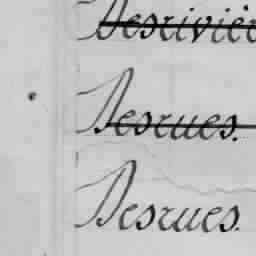 Desriviér
Desrues.
Desrues.